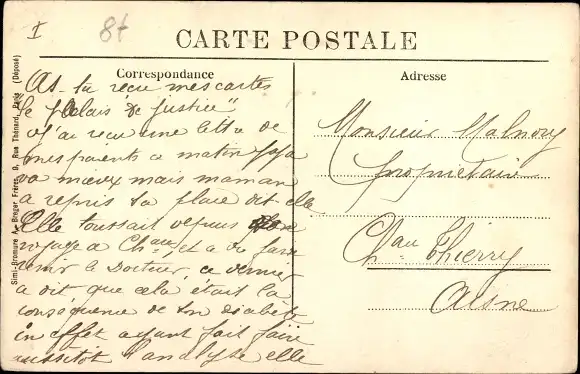 I
8t
CARTE POSTALE
Correspondance
Adresse
As-tu reçu mes cartes
le Palais de justice"
J'ai reçu une lettre de
mes parents ce matin papa
va mieux mais maman
a repris sa place dit elle
Elle toussait depuis son
voyage à Chau, et a du faire
venir le Docteur, ce dernier
a dit que cela était la
conséquence de son diabète
en effet ayant fait faire
aussitot l'analyse elle
Monsieur Malnory
propriétaire
Chau Thierry
Aisne
Simi-Bromure A. Breger Frères, 9, Rue Thénard, Paris (Déposé)